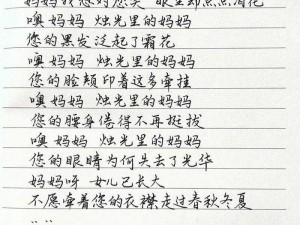 噢妈妈 烛光里的妈妈
您的黑发泛起了霜花
噢妈妈 烛光里的妈妈
您的脸颊印着这多牵挂
噢妈妈 烛光里的妈妈
您的腰身倦得不再挺拔
噢妈妈 烛光里的妈妈
您的眼睛为何失去了光华
妈妈呀 女儿已长大
不愿牵着您的衣襟走过春秋冬夏